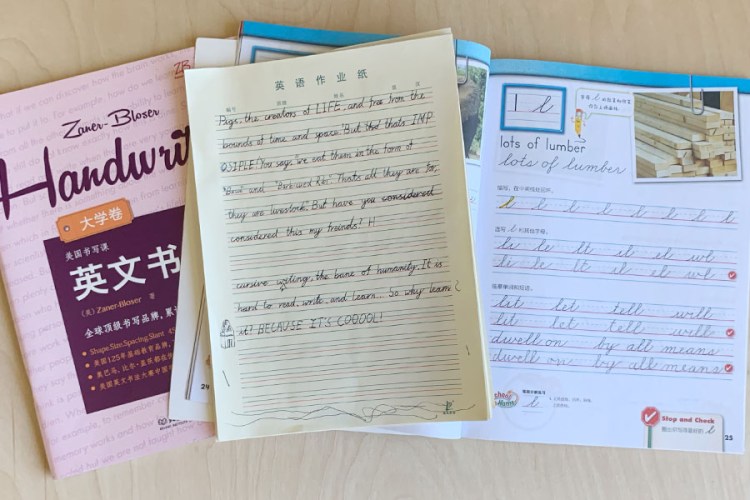 ZB
Zaner-Bloser
Handwrit
大学卷
美国书写课
英文书
(美) Zaner-Bloser 著
全球顶级书写品牌，累
Shape, Size, Spacing, Slant
美国125年基础教育品牌，
奥巴马、比尔·盖茨都在
美国英文书法大赛中国
29
英语作业纸
编号 班级 姓名
Pigs, the creators of LIFE, and free from the
bounds of time and space. "But that thats IMP
OSIPLE!" You says, "we eat them in the form of
"Beef" and "Barbicued Ribs". Thats all they are for,
they are livestock." But have you considered
considered this my freinds? H
cursive wyting, the bane of humanity. It is
hard to read, write, and learn... So why learn
it? BECAUSE IT'S COOOOL!
l l
lots of lumber
lots of lumber
l l l l l l l l
le le lt el el wl
le le lt el el wl
let let tell well
let let tell well
dwell on by all means
dwell on by all means
l
Stop and Check
23